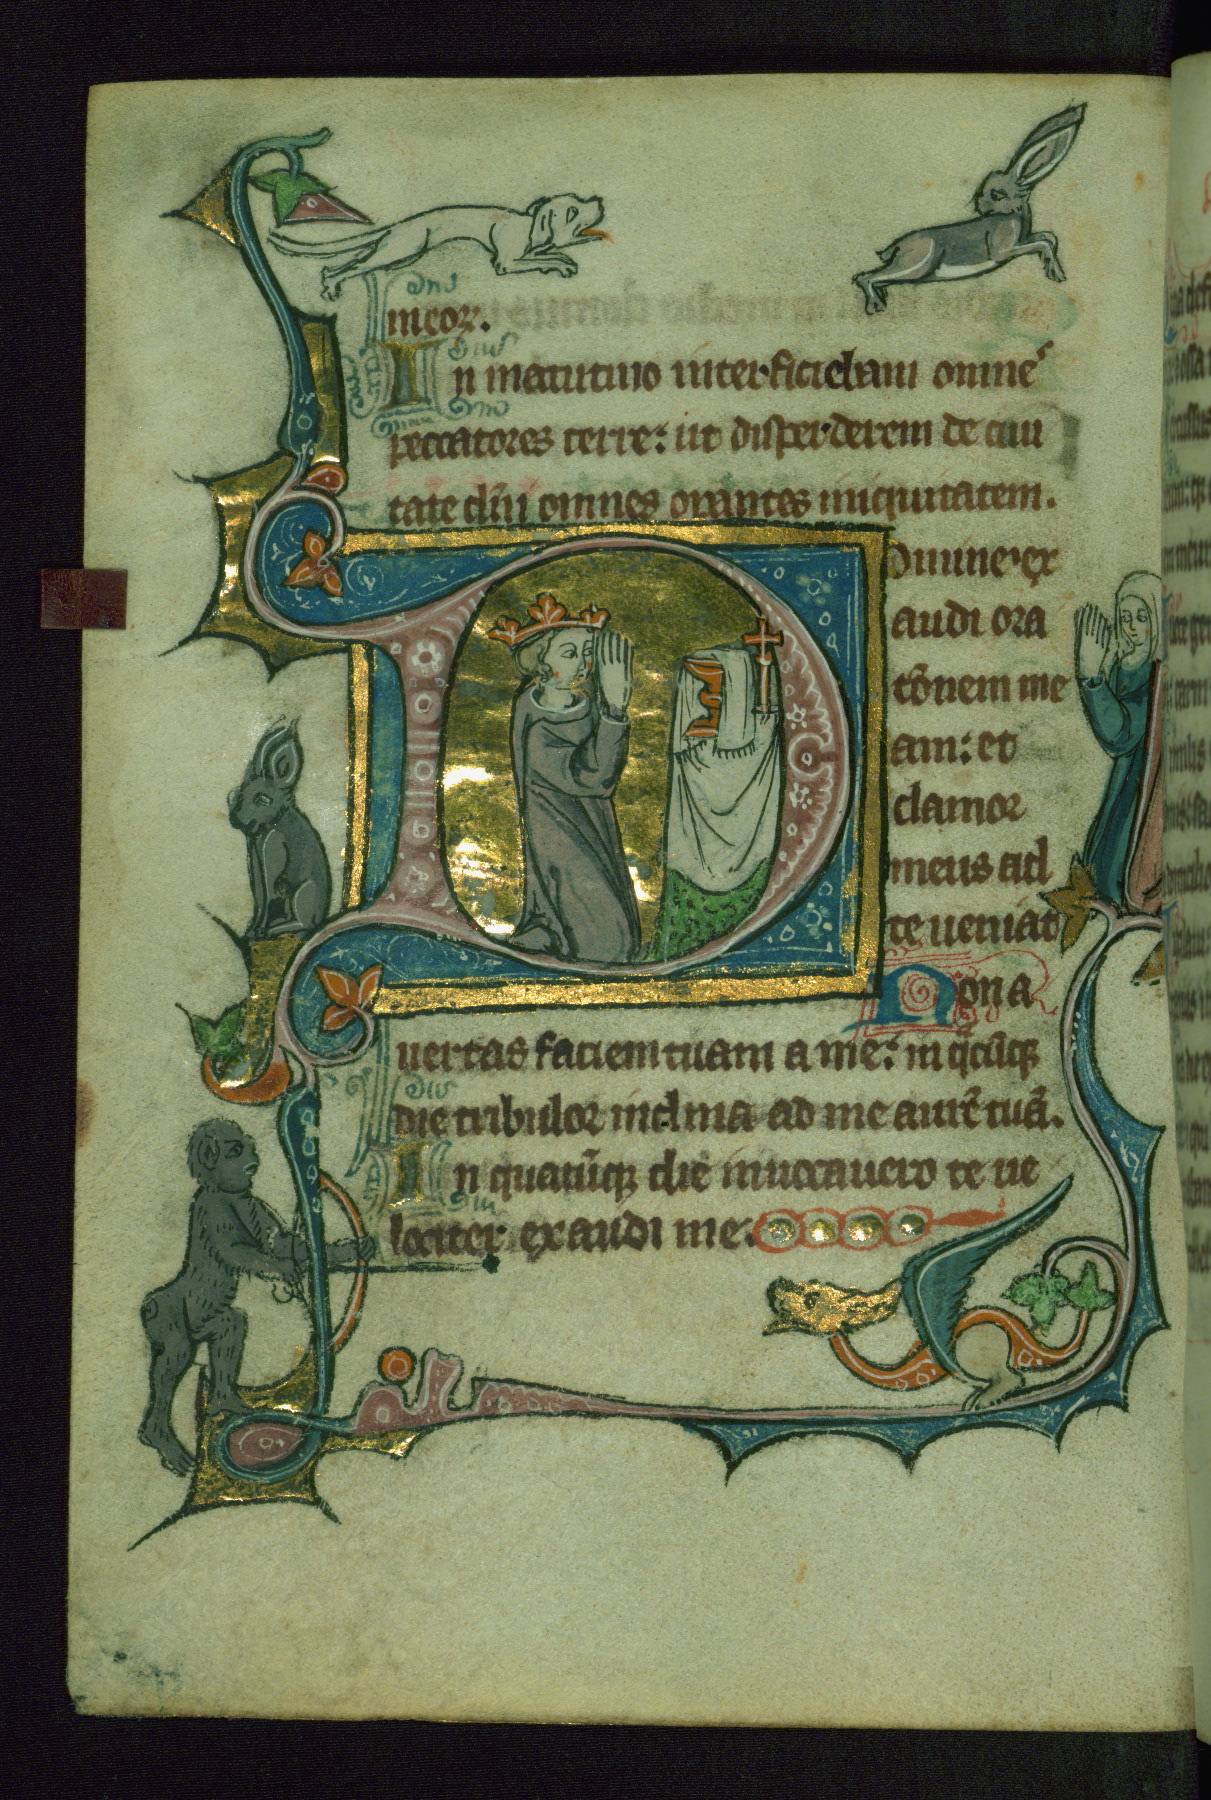 meorͣ.
In matutino interficiebam omnes
peccatores terre: ut disperderem de ciui
tate dñi omnes oꝑantes iniquitatem.
Domine ex
audi ora
tōnem me
am: et
clamor
meus ad
te ueniat
Non a
uertas faciem tuam a me: in q̄cūqꝫ
die tribulor inclina ad me aurē tuā.
In quacūqꝫ die inuocauero te ue
lociter exaudi me.